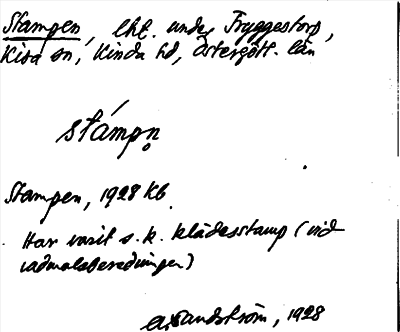 Stampen, lht. under Tryggestorp,
Kisa sn, Kinda hd, Östergötl. län
stámpn̥
Stampen, 1928 kb.
Har varit s. k. klädesstamp (vid
vadmalsberedningen)
A. Sandström, 1928